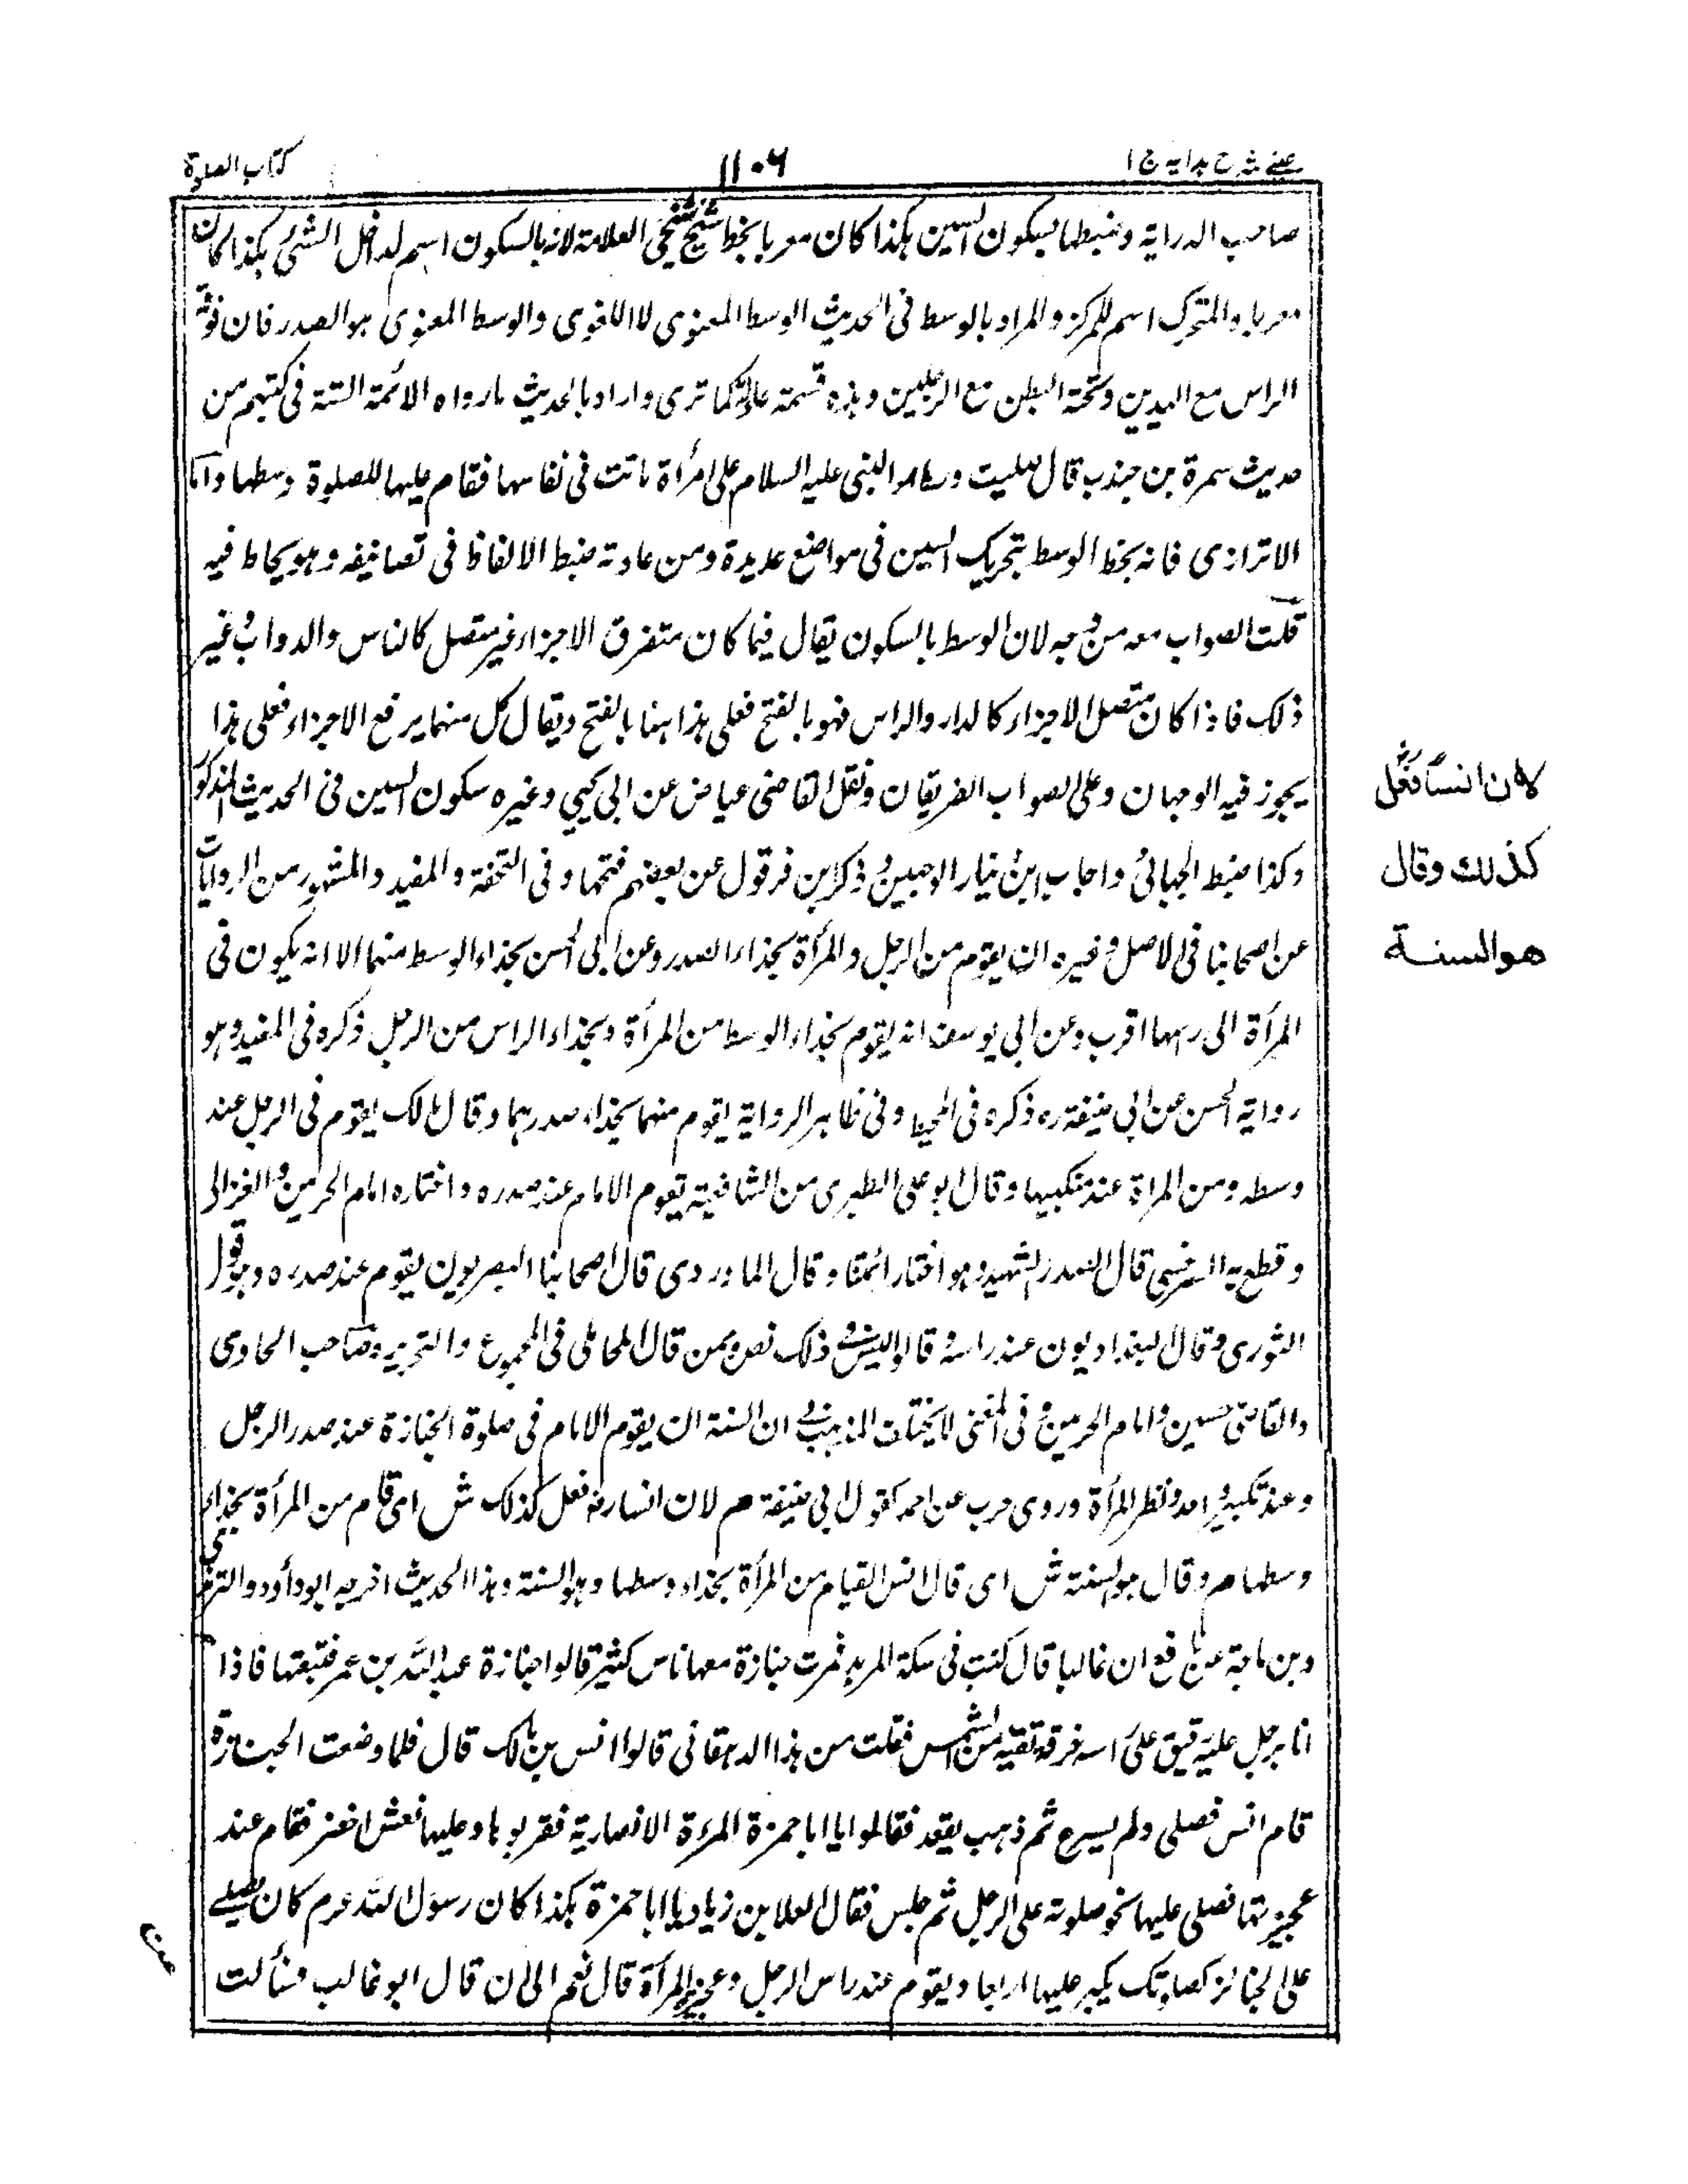 عينى شرح هدايه ج ١
١١٠٦
كتاب الصلوة
صاحب الدراية وضبطها بسكون السين هكذا كان معربا بخط شيخ شيخى العلامة لانه بالسكون اسم لداخل الشئ هكذا كان
معربا والمتحرك اسم للمركز والمراد بالوسط فى الحديث الوسط المعنوى لا اللغوى والوسط المعنوى هو الصدر فان فوقه
الراس مع اليدين وتحته البطن مع الرجلين وهذه قسمة عادلة كما ترى واراد بالحديث ما رواه الائمة الستة فى كتبهم من
حديث سمرة بن جندب قال صليت وراء النبى عليه السلام على امرأة ماتت فى نفاسها فقام عليها للصلوة وسطها واما
الاترازى فانه بخط الوسط بتحريك السين فى مواضع عديدة ومن عادته ضبط الالفاظ فى تصانيفه وهو يحاط فيه
قلت الصواب معه من وجه لان الوسط بالسكون يقال فيما كان متفرق الاجزاء غير متصل كالناس والدواب وغير
ذلك فاذا كان متصل الاجزاء كالدار والراس فهو بالفتح فعلى هذا هنا بالفتح ويقال كل منهما يرفع الاجزاء فعلى هذا
يجوز فيه الوجهان وعلى الصواب الفريقان ونقل القاضى عياض عن ابى يحيى وغيره سكون السين فى الحديث المذكور
وكذا ضبط الجيانى واجاب ابن دينار الوجهين وذكر ابن قرقول عن بعضهم فتحها وفى التحفة والمفيد والمشهور من الروايات
عن اصحابنا فى الاصل وغيره ان يقوم من الرجل والمرأة بحذاء الصدر وعن ابى الحسن بحذاء الوسط منهما الا انه يكون فى
المرأة الى راسها اقرب وعن ابى يوسف انه يقوم بحذاء الوسط من المرأة وبحذاء الراس من الرجل ذكره فى المفيد وهو
رواية الحسن عن ابى حنيفة ره ذكره فى المحيط وفى ظاهر الرواية يقوم منهما بحذاء صدرهما وقال مالك يقوم فى الرجل عند
وسطه ومن المراة عند منكبيها وقال ابو على الطبرى من الشافعية يقوم الامام عند صدره واختاره امام الحرمين والغزالى
وقطع به السرخسى قال الصدر الشهيد وهو اختيار ائمتنا وقال الماوردى قال اصحابنا البصريون يقوم عند صدره وهو قول
الثورى وقال البغداديون عند راسه وقالوا ليس فى ذلك نص وممن قال المحاملى فى المجموع والتجريد وصاحب الحاوى
والقاضى حسين وامام الحرمين وفى المغنى لا يختلف المذهب فى ان السنة ان يقوم الامام فى صلوة الجنازة عند صدر الرجل
وعند منكبيه وامد وفظر المرأة وروى حرب عن احمد كقول ابى حنيفة م لان انسا رضه فعل كذلك ش اى قام من المرأة بحذاء
وسطها م وقال هو السنة ش اى قال انس القيام من المرأة بحذاء وسطها وهو السنة وهذا الحديث اخرجه ابو داؤد والترمذى
وبن ماجة عن نافع ان غالبا قال كنت فى سكة المربد فمرت جنازة معها ناس كثير قالوا جنازة عبد الله بن عمر فتبعتها فاذا
انا برجل عليه رقيق على راسه خرقة تقيه من الشمس فقلت من هذا الدهقانى قالوا انس بن مالك قال فلما وضعت الجنازة
قام انس فصلى ولم يسرع ثم ذهب يقعد فقالوا يا ابا حمزة المرءة الانصارية فقربوها وعليها نعش اخضر فقام عند
عجيزتها فصلى عليها نحو صلوته على الرجل ثم جلس فقال العلا بن زياد يا ابا حمزة هكذا كان رسول الله عم كان يصلى
على الجنائز كصلوتك يكبر عليها اربعا ويقوم عند راس الرجل وعجيزة المرأة قال نعم الى ان قال ابو غالب فسألت
لان انسًا فَعَل
كذلك وقال
هو السنة